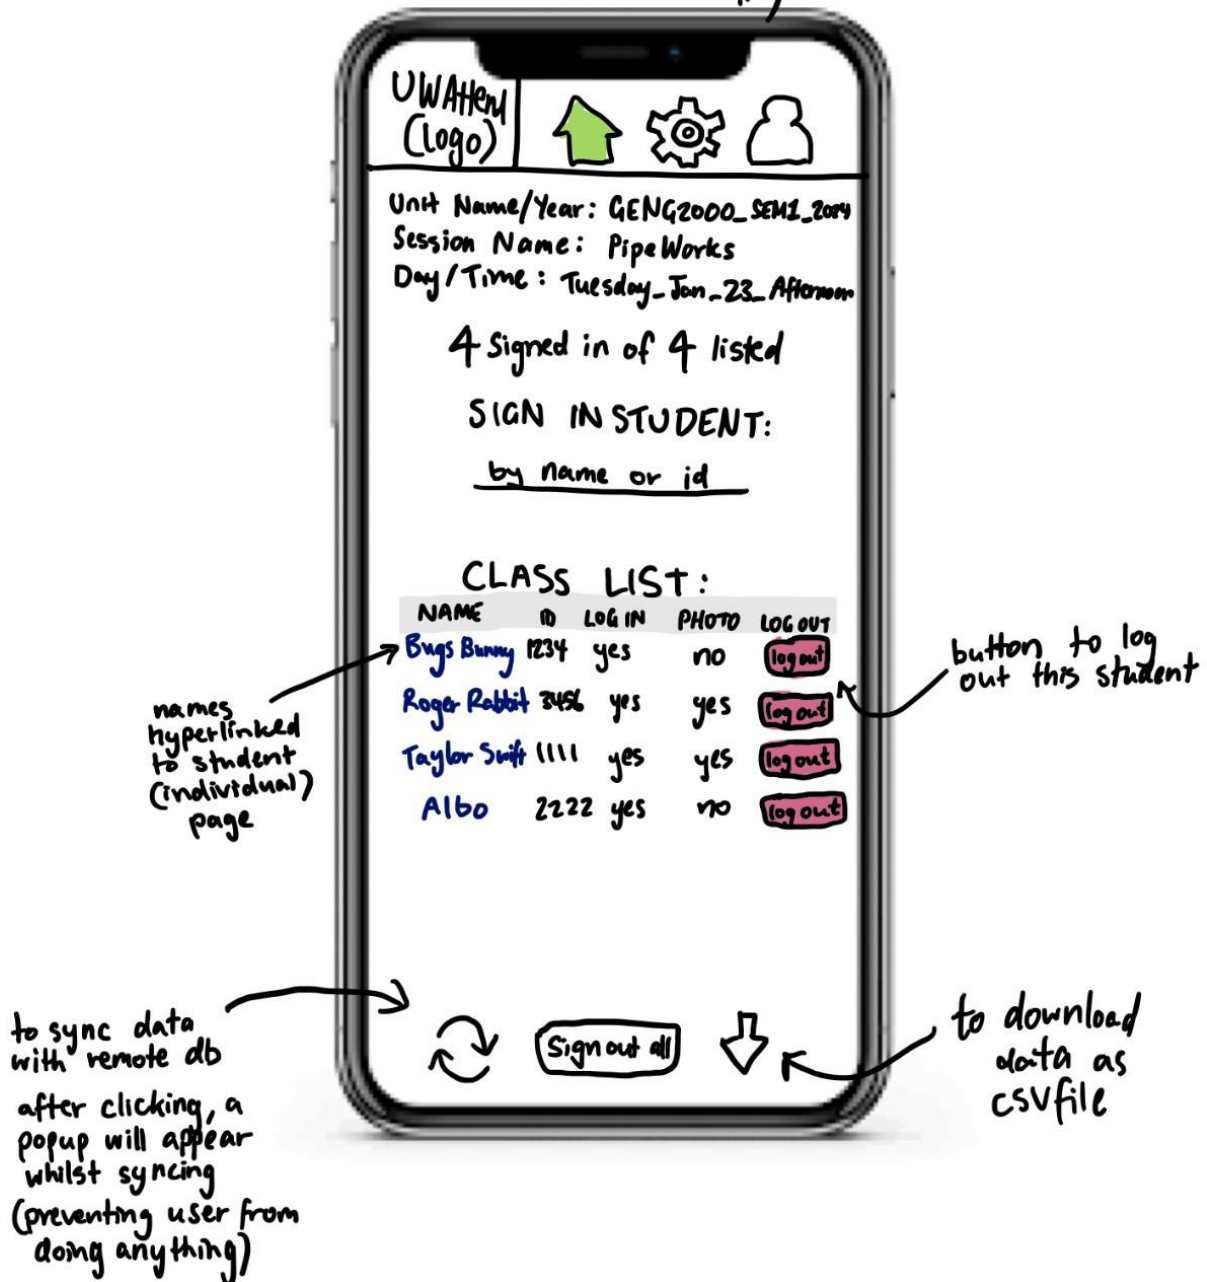 UWAttend
(logo)
Unit Name/Year: GENG2000_SEM1_2024
Session Name: PipeWorks
Day/Time: Tuesday_Jan_23_Afternoon
4 Signed in of 4 listed
SIGN IN STUDENT:
by name or id
CLASS LIST:
NAME ID LOG IN PHOTO LOG OUT
Bugs Bunny 1234 yes no log out
Roger Rabbit 3456 yes yes log out
Taylor Swift 1111 yes yes log out
Albo 2222 yes no log out
names
hyperlinked
to student
(individual)
page
button to log
out this student
Sign out all
to sync data
with remote db
after clicking, a
popup will appear
whilst syncing
(preventing user from
doing anything)
to download
data as
csv file